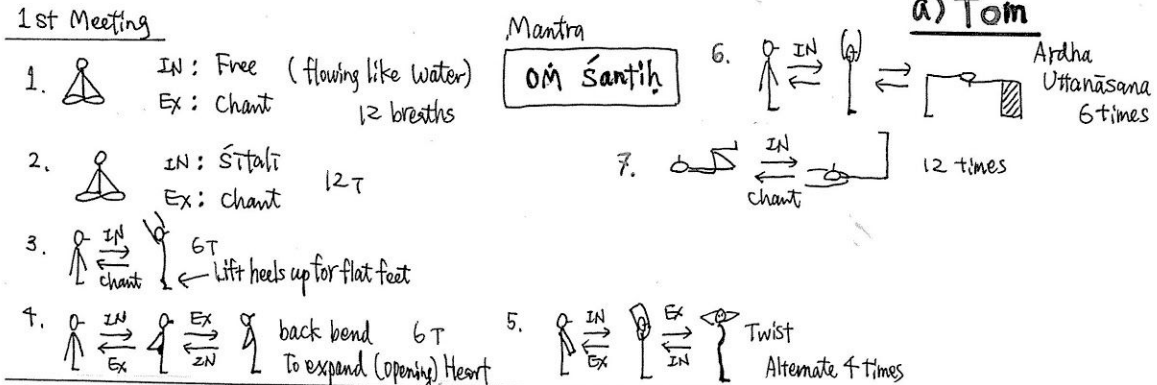 1st Meeting
a) Tom
Mantra
OṀ Śantiḥ
1. IN : Free (flowing like water)
EX : Chant 12 breaths
2. IN : Śītalī
EX : Chant 12T
3. IN
chant
6T
Lift heels up for flat feet
4. IN EX
EX IN
back bend 6T
To expand (opening) Heart
5. IN EX
EX IN
Twist
Alternate 4 times
6. IN
Ardha
Uttanāsana
6 times
7. IN
chant
12 times